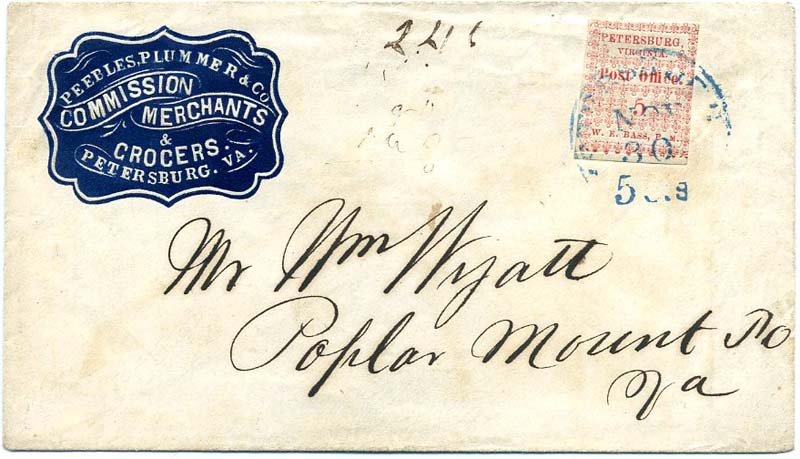 PEEBLES, PLUMMER & CO
COMMISSION
MERCHANTS
&
GROCERS.
PETERSBURG. VA.
PETERSBURG,
VIRGINIA.
Post Office.
5
W. E. BASS, P. M.
NOV
30
Mr Wm Wyatt
Poplar Mount Po
Va